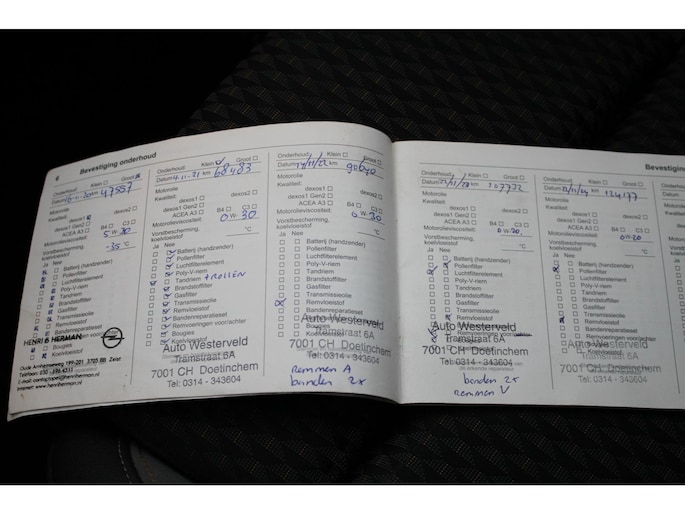 6
Bevestiging onderhoud
Onderhoud: Klein Groot
47557
Motorolie
Kwaliteit: dexos1 dexos2
dexos1 Gen2
ACEA A3 B4 C3
Motorolieviscositeit: 5 W-30
Vorstbescherming, koelvloeistof -35 °C
Ja Nee
Batterij (handzender)
Pollenfilter
Luchtfilterelement
Poly-V-riem
Tandriem
Brandstoffilter
Gasfilter
Transmissieolie
Remvloeistof
Bandenreparatieset
Remvoeringen voor/achter
Bougies
Koelvloeistof
HENRI HERMAN
OPEL
Oude Arnhemseweg 199-201 3705 BB Zeist
Internet: www.henriherman.nl
Onderhoud: Klein Groot
Datum 4-11-21 km 68483
Motorolie
Kwaliteit: dexos1 dexos2
dexos1 Gen2
ACEA A3 B4 C3
Motorolieviscositeit: 0 W-30
Vorstbescherming, koelvloeistof °C
Ja Nee
Batterij (handzender)
Pollenfilter
Luchtfilterelement
Poly-V-riem
Tandriem + ROLLEN
Brandstoffilter
Gasfilter
Transmissieolie
Remvloeistof
Bandenreparatieset
Remvoeringen voor/achter
Bougies
Koelvloeistof
Auto Westerveld
Tramstraat 6A
7001 CH Doetinchem
Tel: 0314 - 343604
Onderhoud: Klein Groot
Datum km
Motorolie
Kwaliteit: dexos1 dexos2
dexos1 Gen2
ACEA A3 B4 C3
Motorolieviscositeit: 0 W-30
Vorstbescherming, koelvloeistof °C
Ja Nee
Batterij (handzender)
Pollenfilter
Luchtfilterelement
Poly-V-riem
Tandriem
Brandstoffilter
Gasfilter
Transmissieolie
Remvloeistof
Bandenreparatieset
Auto Westerveld
Tramstraat 6A
7001 CH Doetinchem
Tel: 0314 - 343604
Remmen A
banden 2x
Bevestiging
Onderhoud: Klein Groot
Datum km 107772
Motorolie
Kwaliteit: dexos1 dexos2
dexos1 Gen2
ACEA A3 B4 C3
Motorolieviscositeit: 0 W-20
Vorstbescherming, koelvloeistof °C
Ja Nee
Batterij (handzender)
Pollenfilter
Luchtfilterelement
Poly-V-riem
Tandriem
Brandstoffilter
Gasfilter
Transmissieolie
Remvloeistof
Bandenreparatieset
Auto Westerveld
Tramstraat 6A
7001 CH Doetinchem
Tel: 0314 - 343604
banden 2x
remmen V
Onderhoud: Klein Groot
Datum km 124177
Motorolie
Kwaliteit: dexos1 dexos2
dexos1 Gen2
ACEA A3 B4 C3
Motorolieviscositeit: 0W-20
Vorstbescherming, koelvloeistof °C
Ja Nee
Batterij (handzender)
Pollenfilter
Luchtfilterelement
Poly-V-riem
Tandriem
Brandstoffilter
Gasfilter
Transmissieolie
Remvloeistof
Bandenreparatieset
Auto Westerveld
Tramstraat 6A
7001 CH Doetinchem
Tel: 0314 - 343604